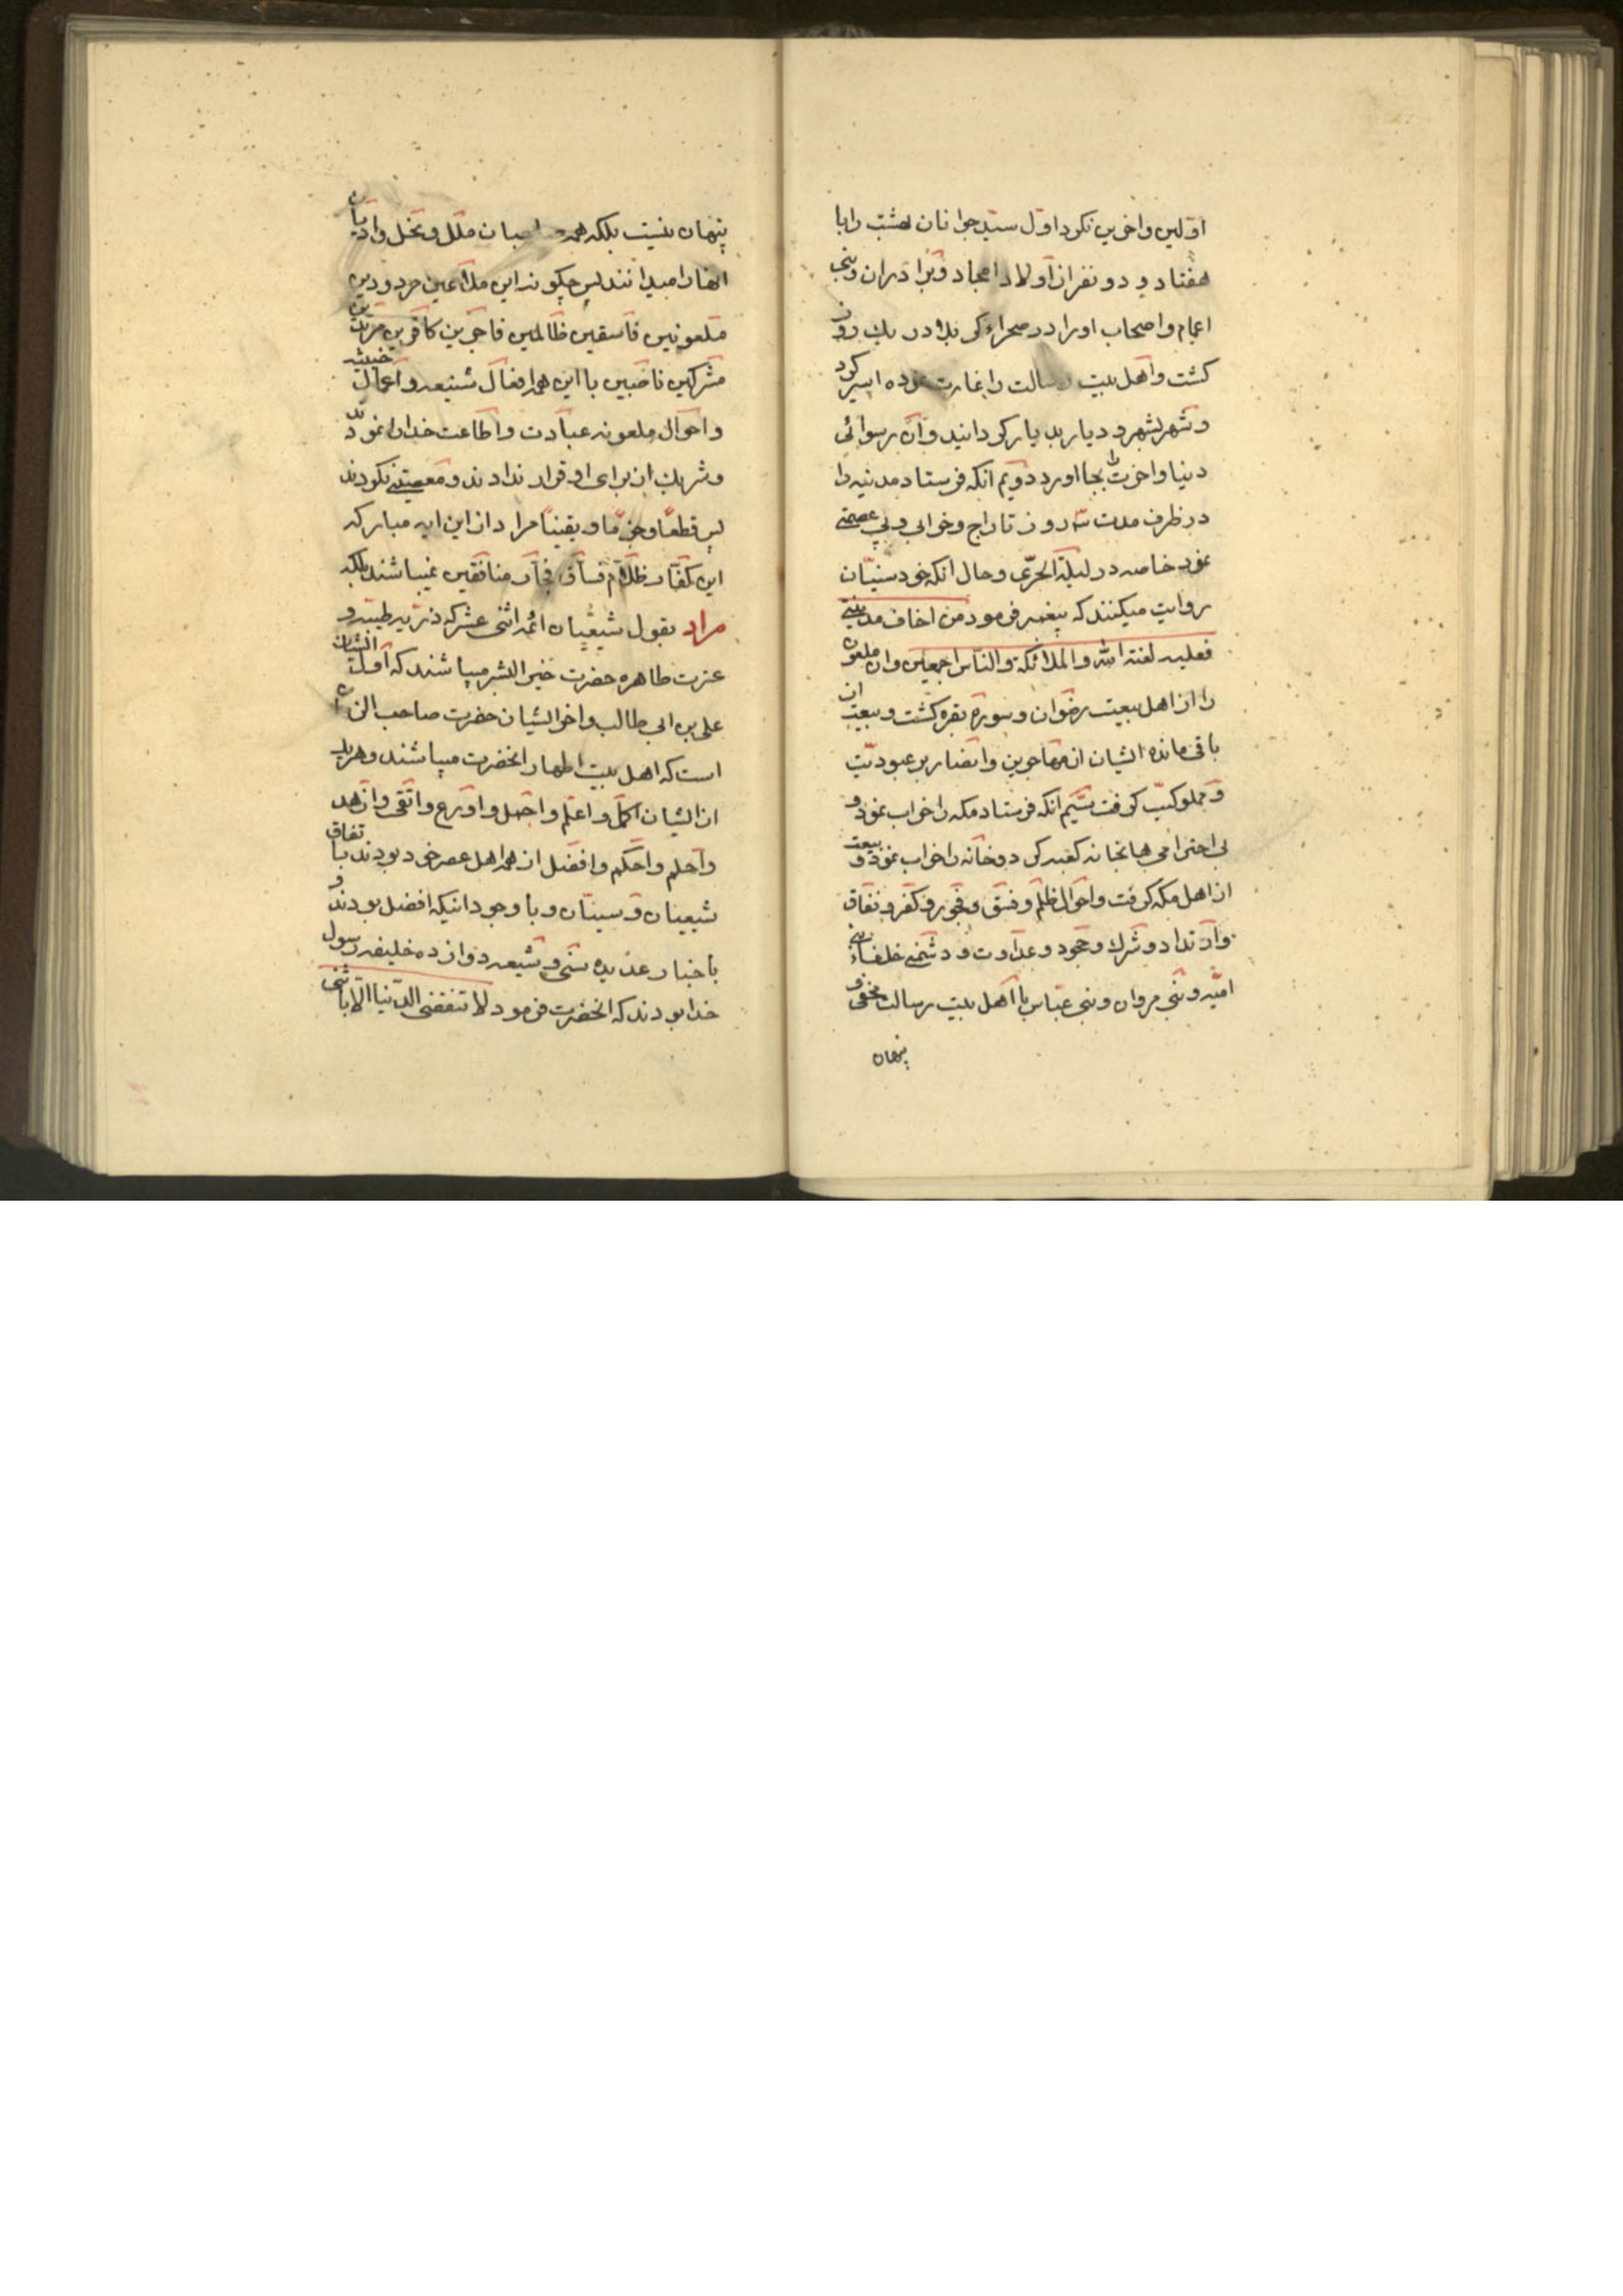 اولین و اخرین نکرد اول سید جوانان بهشت را با
هفتاد و دو نفر از اولاد امجاد و برادران و بنی
اعمام و اصحاب او را در صحراء کربلا در یک روز
کشت و اهل بیت رسالت را غارت نموده اسیر کرد
و شهر بشهر و دیار بدیار کردانید و آن رسوائی
دنیا و اخرت را بجا اورد دویم انکه فرستاد مدنیه را
در ظرف مدت سه روز تاراج و خرابی و بی عصمتی
نمود خاصه در لیلة الحرّی و حال انکه خود سنیّان
روایت میکنند که پیغمبر فرمود من اخاف مدینتی
فعلیه لعنة الله و الملائکة و الناس اجمعین و ان ملعون
را از اهل بیعت رضوان و سورة بقره کشت و بیعت از
باقی مانده ایشان از مهاجرین و انصار بر عبودیّت
و مملوکیّت کرفت سیّم انکه فرستاد مکه را خراب نمود و
بی احترامی ها بخانه کعبه کرد و خانه را خراب نمود و بیعت
از اهل مکه کرفت و احوال ظلم و فسق و فجور و کفر و نفاق
و ارتداد و شرک و جحود و عداوت و دشمنی خلفاء بنی
امیّه و بنی مروان و بنی عباس با اهل بیت رسالت مخفی و
پنهان
پنهان نیست بلکه همه صاحبان ملل و نحل و ادیان
انها را میدانند پس چکونه این ملاعین مردودین
ملعونین فاسقین ظالمین فاجرین کافرین مرتدین
مشرکین ناصبین با این همه افعال شنیعه و اعمال خبیثه
و احوال ملعونه عبادت و اطاعت خدا را نمودند
و شریک از برای او قرار ندادند و معصیتی نکردند
پس قطعاً و جزماً و یقیناً مراد از این ایه مبارکه
این کفّار ظلّام فسّاق فجّار منافقین نمیباشند بلکه
مراد بقول شیعیان ائمه اثنی عشر که ذریه طیبه و
عترت طاهره حضرت خیر البشر میباشند که اول ایشان
علی بن ابی طالب و اخر ایشان حضرت صاحب الزمان
است که اهل بیت اطهار انحضرت میباشند و هر یک
از ایشان اکمل و اعلم و اجمل و اورع و اتقی و ازهد
و احلم و احکم و افضل از همه اهل عصر خود بودند باتفاق
شیعیان و سنیان و با وجود اینکه افضل بودند و
باخبار عدیده سنّی و شیعه دوازده خلیفه رسول
خدا بودند که انحضرت فرمود لا تنقضی الدّنیا الّا باثنی